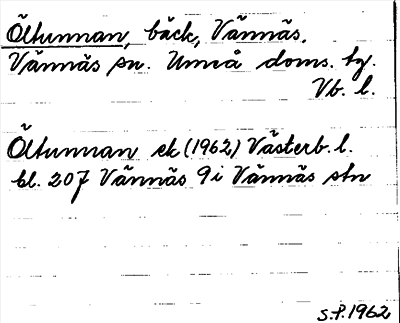 Öltunnan, bäck, Vännäs.
Vännäs sn. Umeå doms. tg.
Vb. l.
Öltunnan ek (1962) Västerb. l.
bl. 207 Vännäs 9i Vännäs stn
S.P. 1962